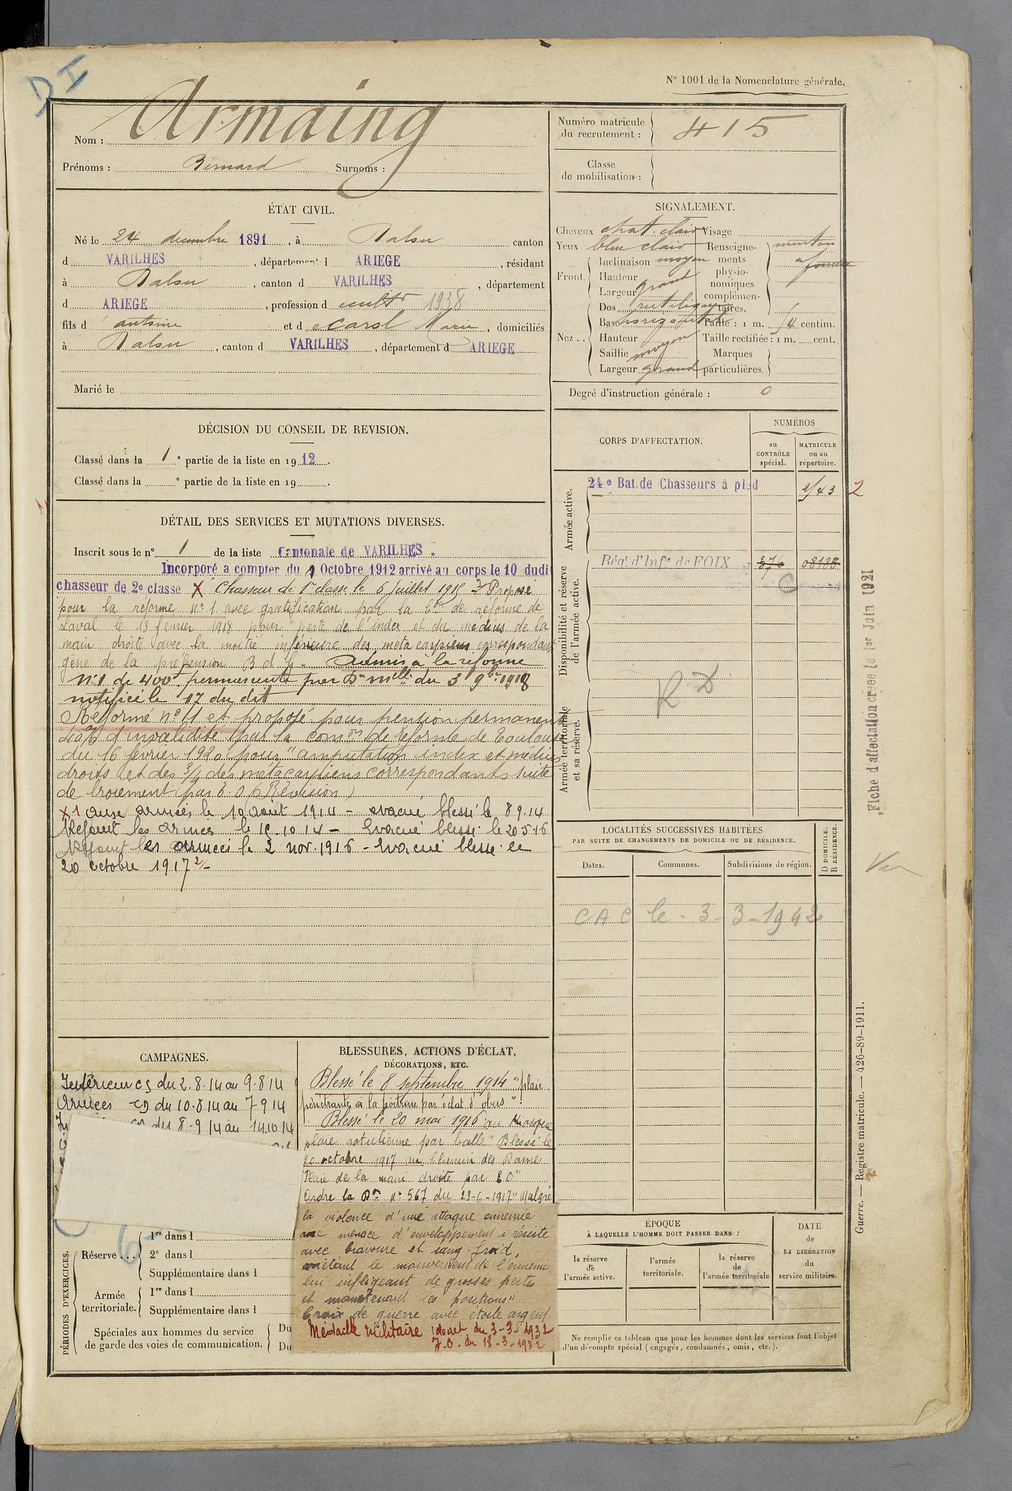 D I
N° 1001 de la Nomenclature générale.
Nom : Armaing
Prénoms : Bernard Surnoms :
Numéro matricule du recrutement : 415
Classe de mobilisation :
ÉTAT CIVIL.
Né le 24 décembre 1891, à Dalou canton
d VARILHES, département d ARIEGE, résidant
à Dalou, canton d VARILHES, département
d ARIEGE, profession d cultr 1938
fils d antoine et d ecarol Marie, domiciliés
à Dalou, canton d VARILHES, département d ARIEGE
Marié le
SIGNALEMENT.
Cheveux chat. clair Visage
Yeux bleu clair Renseignements physionomiques complémentaires. menton à fossette
Front. Inclinaison moyen
Hauteur
Largeur grand
Nez . . Dos rectiligne
Base horizontale Taille : 1 m. centim.
Hauteur Taille rectifiée : 1 m. cent.
Saillie moyen Marques
Largeur grand particulières.
Degré d'instruction générale : 0
DÉCISION DU CONSEIL DE REVISION.
Classé dans la 1e partie de la liste en 1912.
Classé dans la e partie de la liste en 19 .
DÉTAIL DES SERVICES ET MUTATIONS DIVERSES.
Inscrit sous le n° 1 de la liste Cantonale de VARILHES.
Incorporé a compter du 9 Octobre 1912 arrivé au corps le 10 dudit
chasseur de 2e classe X Chasseur de 1e classe le 6 juillet 1915 2 Proposé
pour la réforme n° 1 avec gratification par la Con de réforme de
Laval le 13 février 1918 pour "perte de l'index et du medius de la
main droite avec la moitié inférieure des metacarpiens correspondant
gene de la préhension Admis à la réforme
N° 1 de 400f permanente par Don mlle du 3 9bre 1918
notifiée le 17 du dit
Réformé n° 1 et proposé pour pension permanente
d'invalidité par la comon de réforme de Toulouse
du 16 février 1920 pour "amputation index et médius
droits et des 3/4 des métacarpiens correspondants suite
de broiement (par E.O. Révision)
X1 aux armées le 10 août 1914 - évacué blessé le 8 9.14
Rejoint les armées le 15.10.14 - Evacué blessé le 20 5.16
Rejoint les armées le 2 nov. 1916 - Evacué blessé le
20 octobre 1917 2 -
CORPS D'AFFECTATION.
NUMÉROS
au CONTRÔLE spécial.
MATRICULE ou au répertoire.
Armée active.
24e Bat. de Chasseurs à pied 2
Disponibilité et réserve de l'armée active.
Régt d'Infie de FOIX
C
Armée territoriale et sa réserve.
R D
Fiche d'affectation créée le 1er Juin 1921
LOCALITÉS SUCCESSIVES HABITÉES
PAR SUITE DE CHANGEMENTS DE DOMICILE OU DE RÉSIDENCE.
Dates. Communes. Subdivisions de région. D DOMICILE. R RÉSIDENCE.
CAC le - 3 - 3 - 1942
Vu
CAMPAGNES.
Intérieur CS du 2.8.14 au 9 8 14
Armées CD du 10.8 14 au 7 9 14
CS du 8-9 14 au 14.10 14
PÉRIODES D'EXERCICES.
Réserve . . . 1re dans l
2e dans l
Supplémentaire dans l
Armée territoriale. 1re dans l
Supplémentaire dans l
Spéciales aux hommes du service de garde des voies de communication. Du
Du
BLESSURES, ACTIONS D'ÉCLAT,
DÉCORATIONS, ETC.
Blessé le 8 septembre 1914 "plaie
pénétrante à la poitrine par éclat d'obus"
Blessé le 20 mai 1916 au
plaie rotulienne par balle" Blessé le
20 octobre 1917 au chemin des Dames
Plaie de la main droite par E O"
Ordre la Don N° 567 du 23-6-1917 "Malgré
la violence d'une attaque ennemie
une menace d'enveloppement a résisté
avec bravoure et sang froid,
arrêtant le mouvement de l'ennemi
lui infligeant de grosses pertes
et maintenant les positions"
Croix de guerre avec étoile argent
Médaille Militaire décret du 3-3-1932
J.O. du 18-3-1932
ÉPOQUE
À LAQUELLE L'HOMME DOIT PASSER DANS :
la réserve de l'armée active.
l'armée territoriale.
la réserve de l'armée territoriale
DATE de LA LIBÉRATION du service militaire.
Ne remplir ce tableau que pour les hommes dont les services font l'objet
d'un décompte spécial (engagés, condamnés, omis, etc.).
Guerre. — Registre matricule. — 426-89-1911.